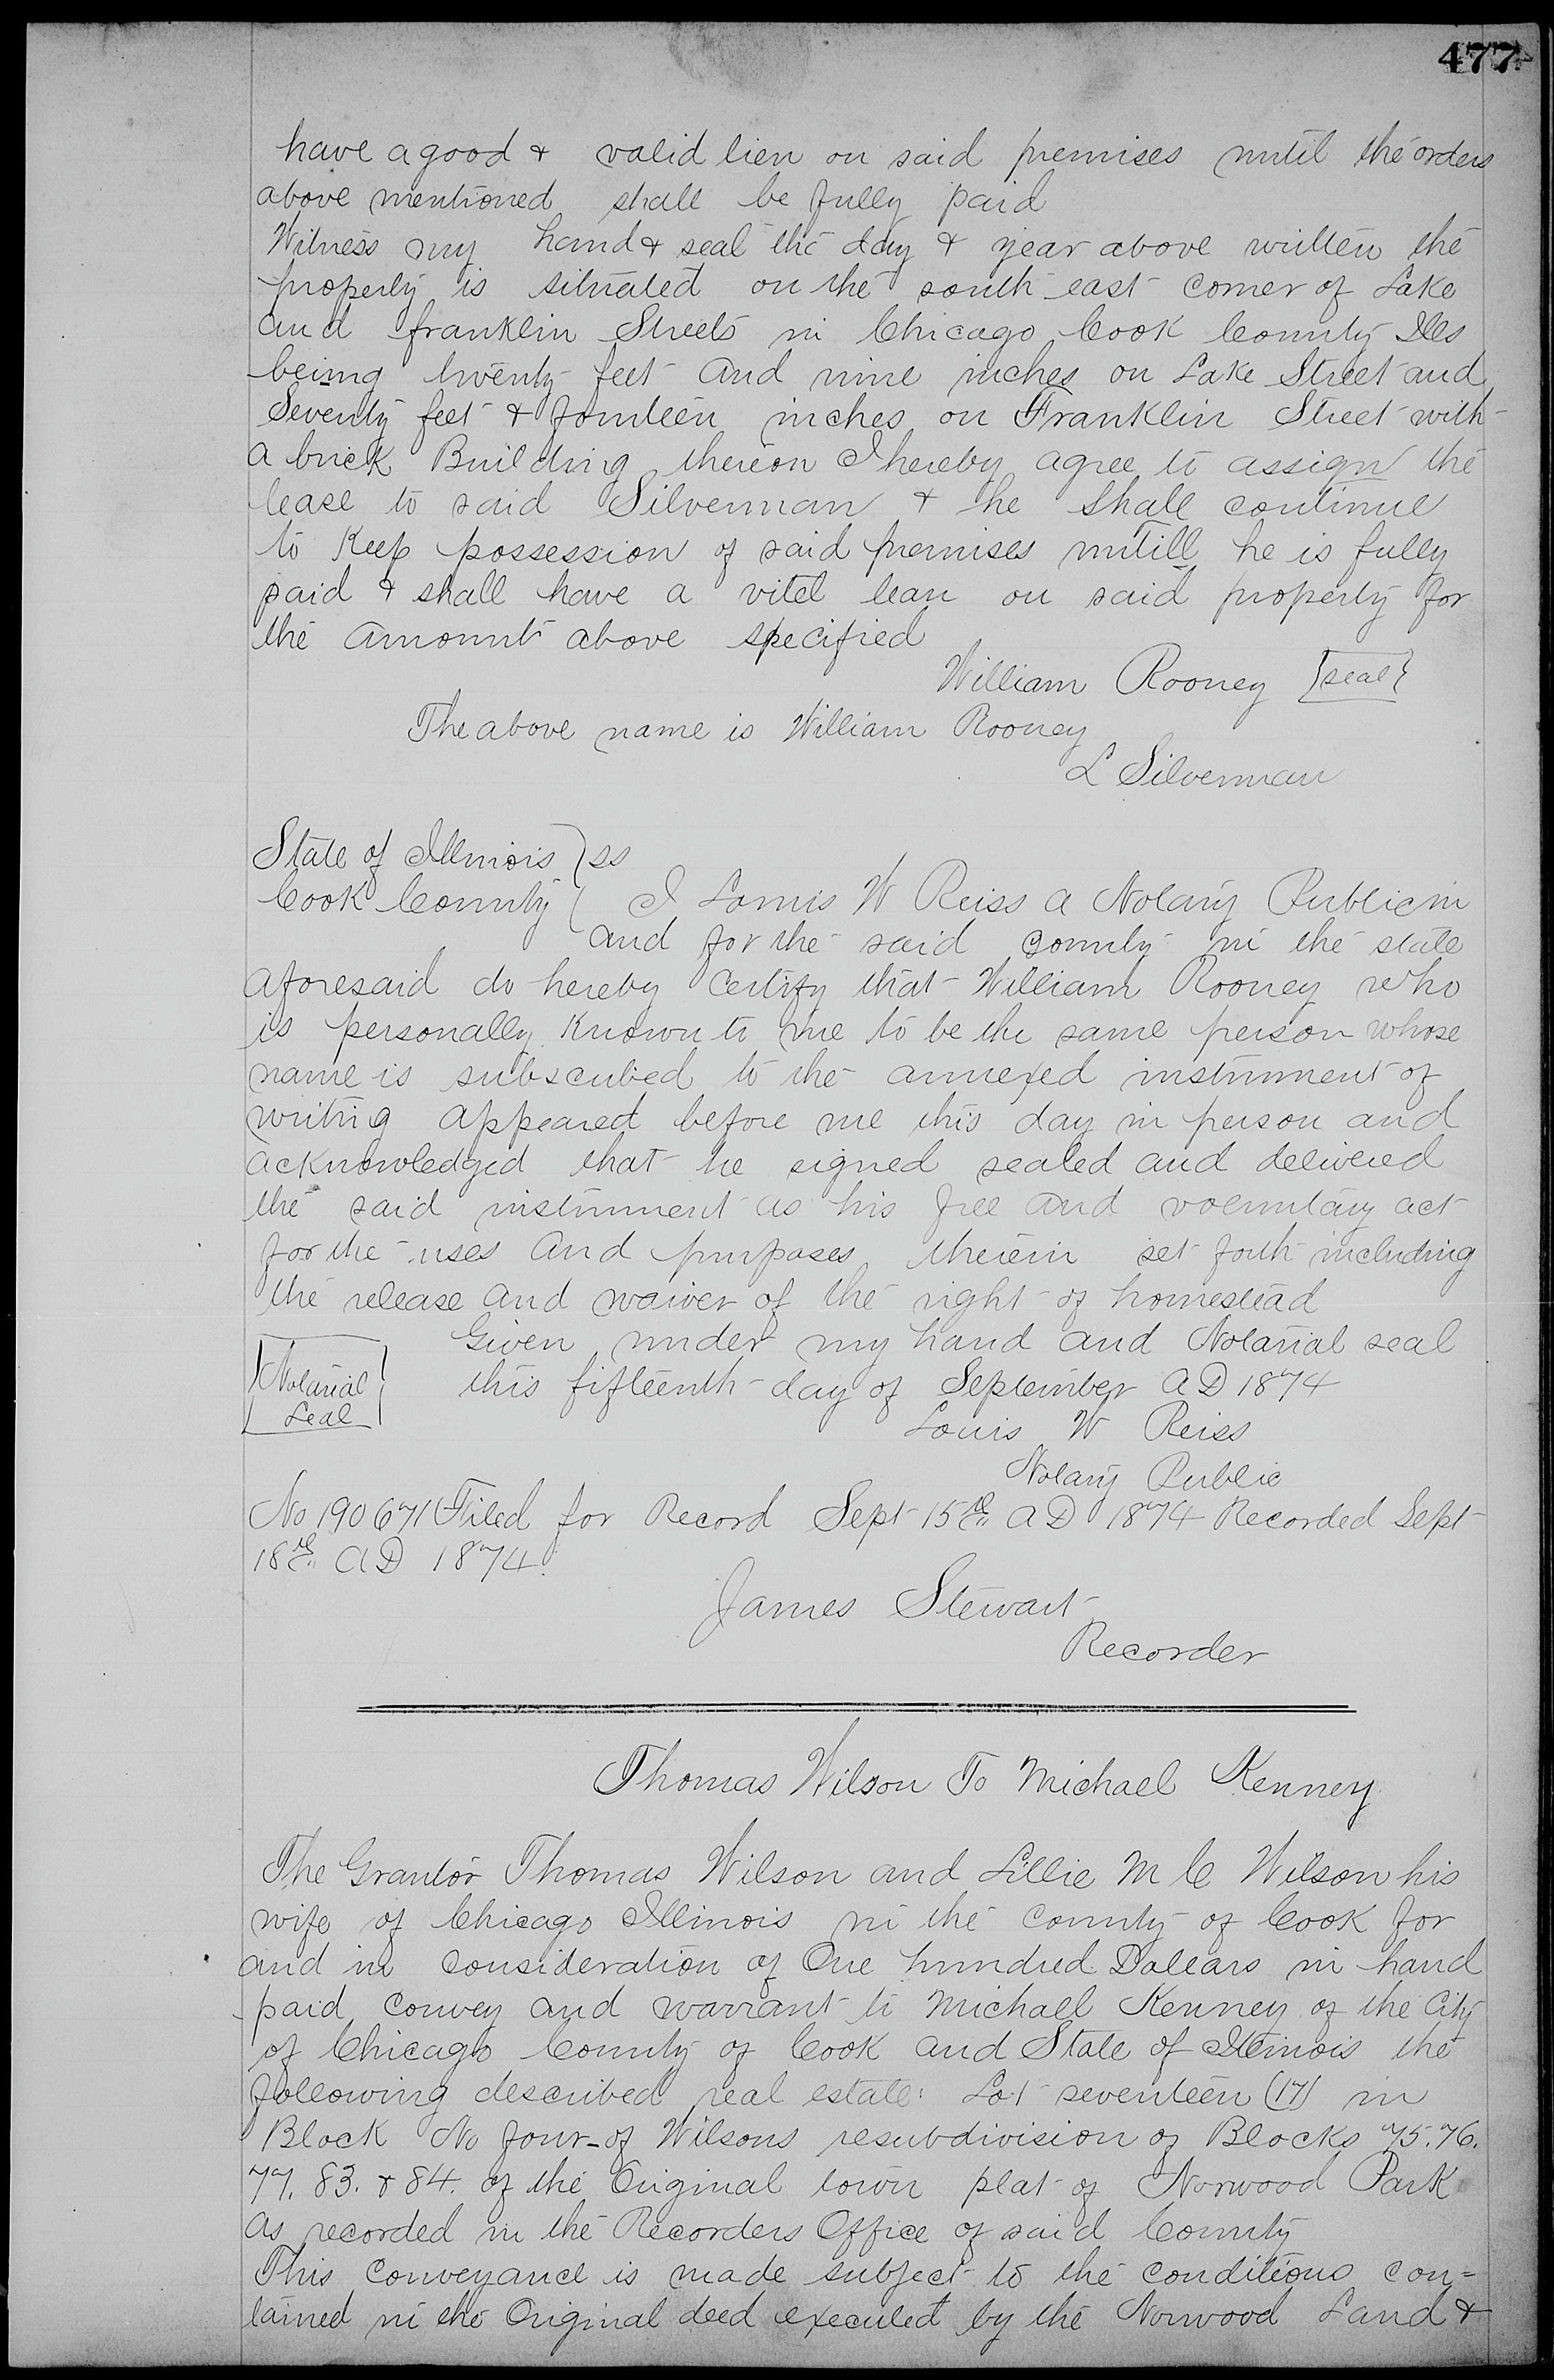 477
have a good & valid lien on said premises until the orders
above mentioned shall be fully paid
Witness my hand & seal the day & year above written the
property is situated on the south east corner of Lake
and franklin Streets in Chicago Cook County Ills
being twenty feet and nine inches on Lake Street and
Seventy feet & fourteen inches on Franklin Street with
a brick Building thereon I hereby agree to assign the
lease to said Silverman & he shall continue
to Keep possession of said premises untill he is fully
paid & shall have a vitel lean on said property for
the amount above specified
William Rooney {seal}
The above name is William Rooney
L Silverman
State of Illinois } ss
Cook County } I Louis W Reiss a Notary Public in
and for the said County in the state
aforesaid do hereby certify that William Rooney who
is personally Known to me to be the same person whose
name is subscribed to the annexed instrument of
writing appeared before me this day in person and
acknowledged that he signed sealed and delivered
the said instrument as his free and voluntary act
for the uses and purposes therein set forth including
the release and waiver of the right of homestead
Given under my hand and Notarial seal
{Notarial Seal} this fifteenth day of September AD 1874
Louis W Reiss
Notary Public
No 190671 Filed for Record Sept 15th AD 1874 Recorded Sept
18th AD 1874.
James Stewart
Recorder
Thomas Wilson To Michael Kenney
The Grantor Thomas Wilson and Lillie M C Wilson his
wife of Chicago Illinois in the County of Cook for
and in consideration of One hundred Dollars in hand
paid convey and warrant to Michael Kenney of the City
of Chicago County of Cook and State of Illinois the
following described real estate: Lot seventeen (17) in
Block No four of Wilsons resubdivision of Blocks 75. 76.
77. 83. & 84. of the Original town plat of Norwood Park
as recorded in the Recorders Office of said County
This conveyance is made subject to the conditions con=
tained in the Original deed executed by the Norwood Land &